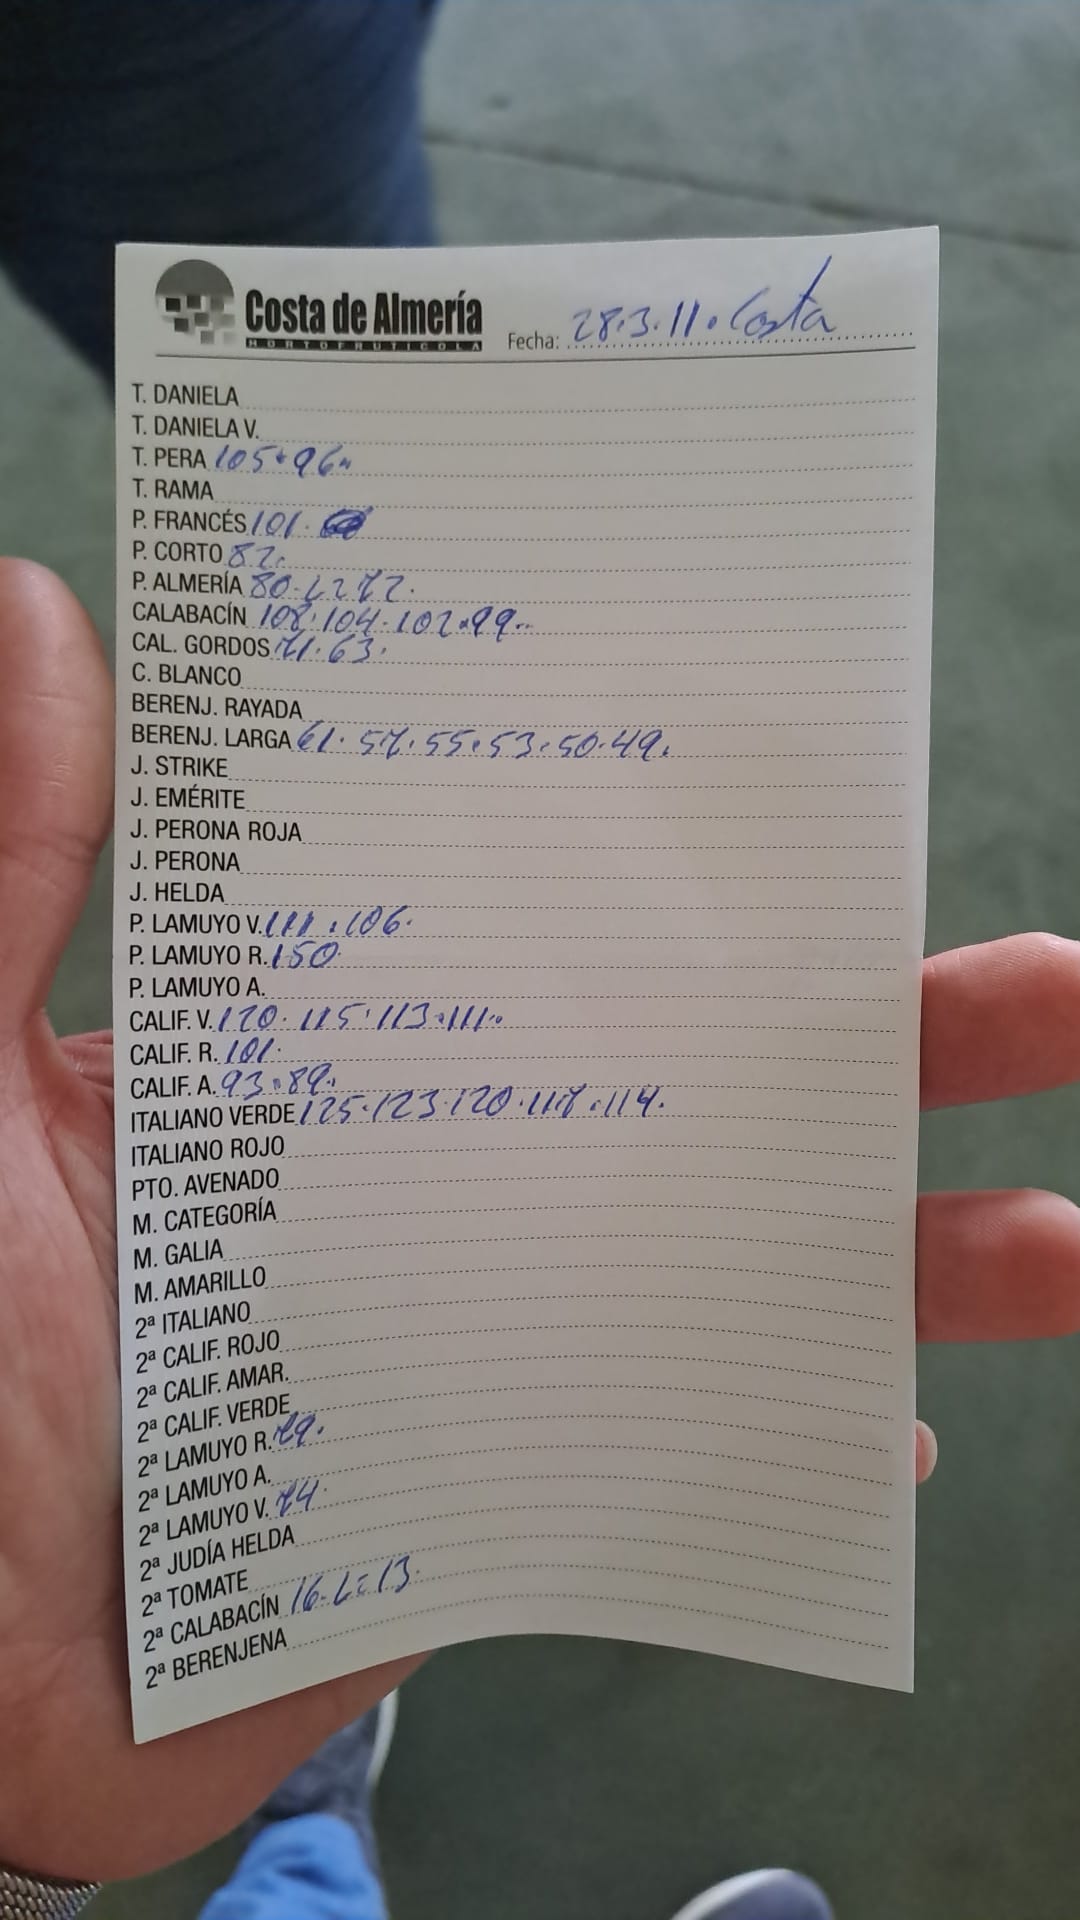 Costa de Almería
HORTOFRUTICOLA
Fecha: 28.3.11. Costa
T. DANIELA
T. DANIELA V.
T. PERA 105.96..
T. RAMA
P. FRANCÉS 101.
P. CORTO 82.
P. ALMERÍA 80. L=72.
CALABACÍN 108.104.102.99..
CAL. GORDOS 71.63.
C. BLANCO
BERENJ. RAYADA
BERENJ. LARGA 61.57.55.53.50.49.
J. STRIKE
J. EMÉRITE
J. PERONA ROJA
J. PERONA
J. HELDA
P. LAMUYO V. 111.106.
P. LAMUYO R. 150.
P. LAMUYO A.
CALIF. V. 120.115.113.111..
CALIF. R. 101.
CALIF. A. 93.89..
ITALIANO VERDE 125.123.120.117.114.
ITALIANO ROJO
PTO. AVENADO
M. CATEGORÍA
M. GALIA
M. AMARILLO
2ª ITALIANO
2ª CALIF. ROJO
2ª CALIF. AMAR.
2ª CALIF. VERDE
2ª LAMUYO R. 79.
2ª LAMUYO A.
2ª LAMUYO V. 74.
2ª JUDÍA HELDA
2ª TOMATE
2ª CALABACÍN 16. L=13.
2ª BERENJENA